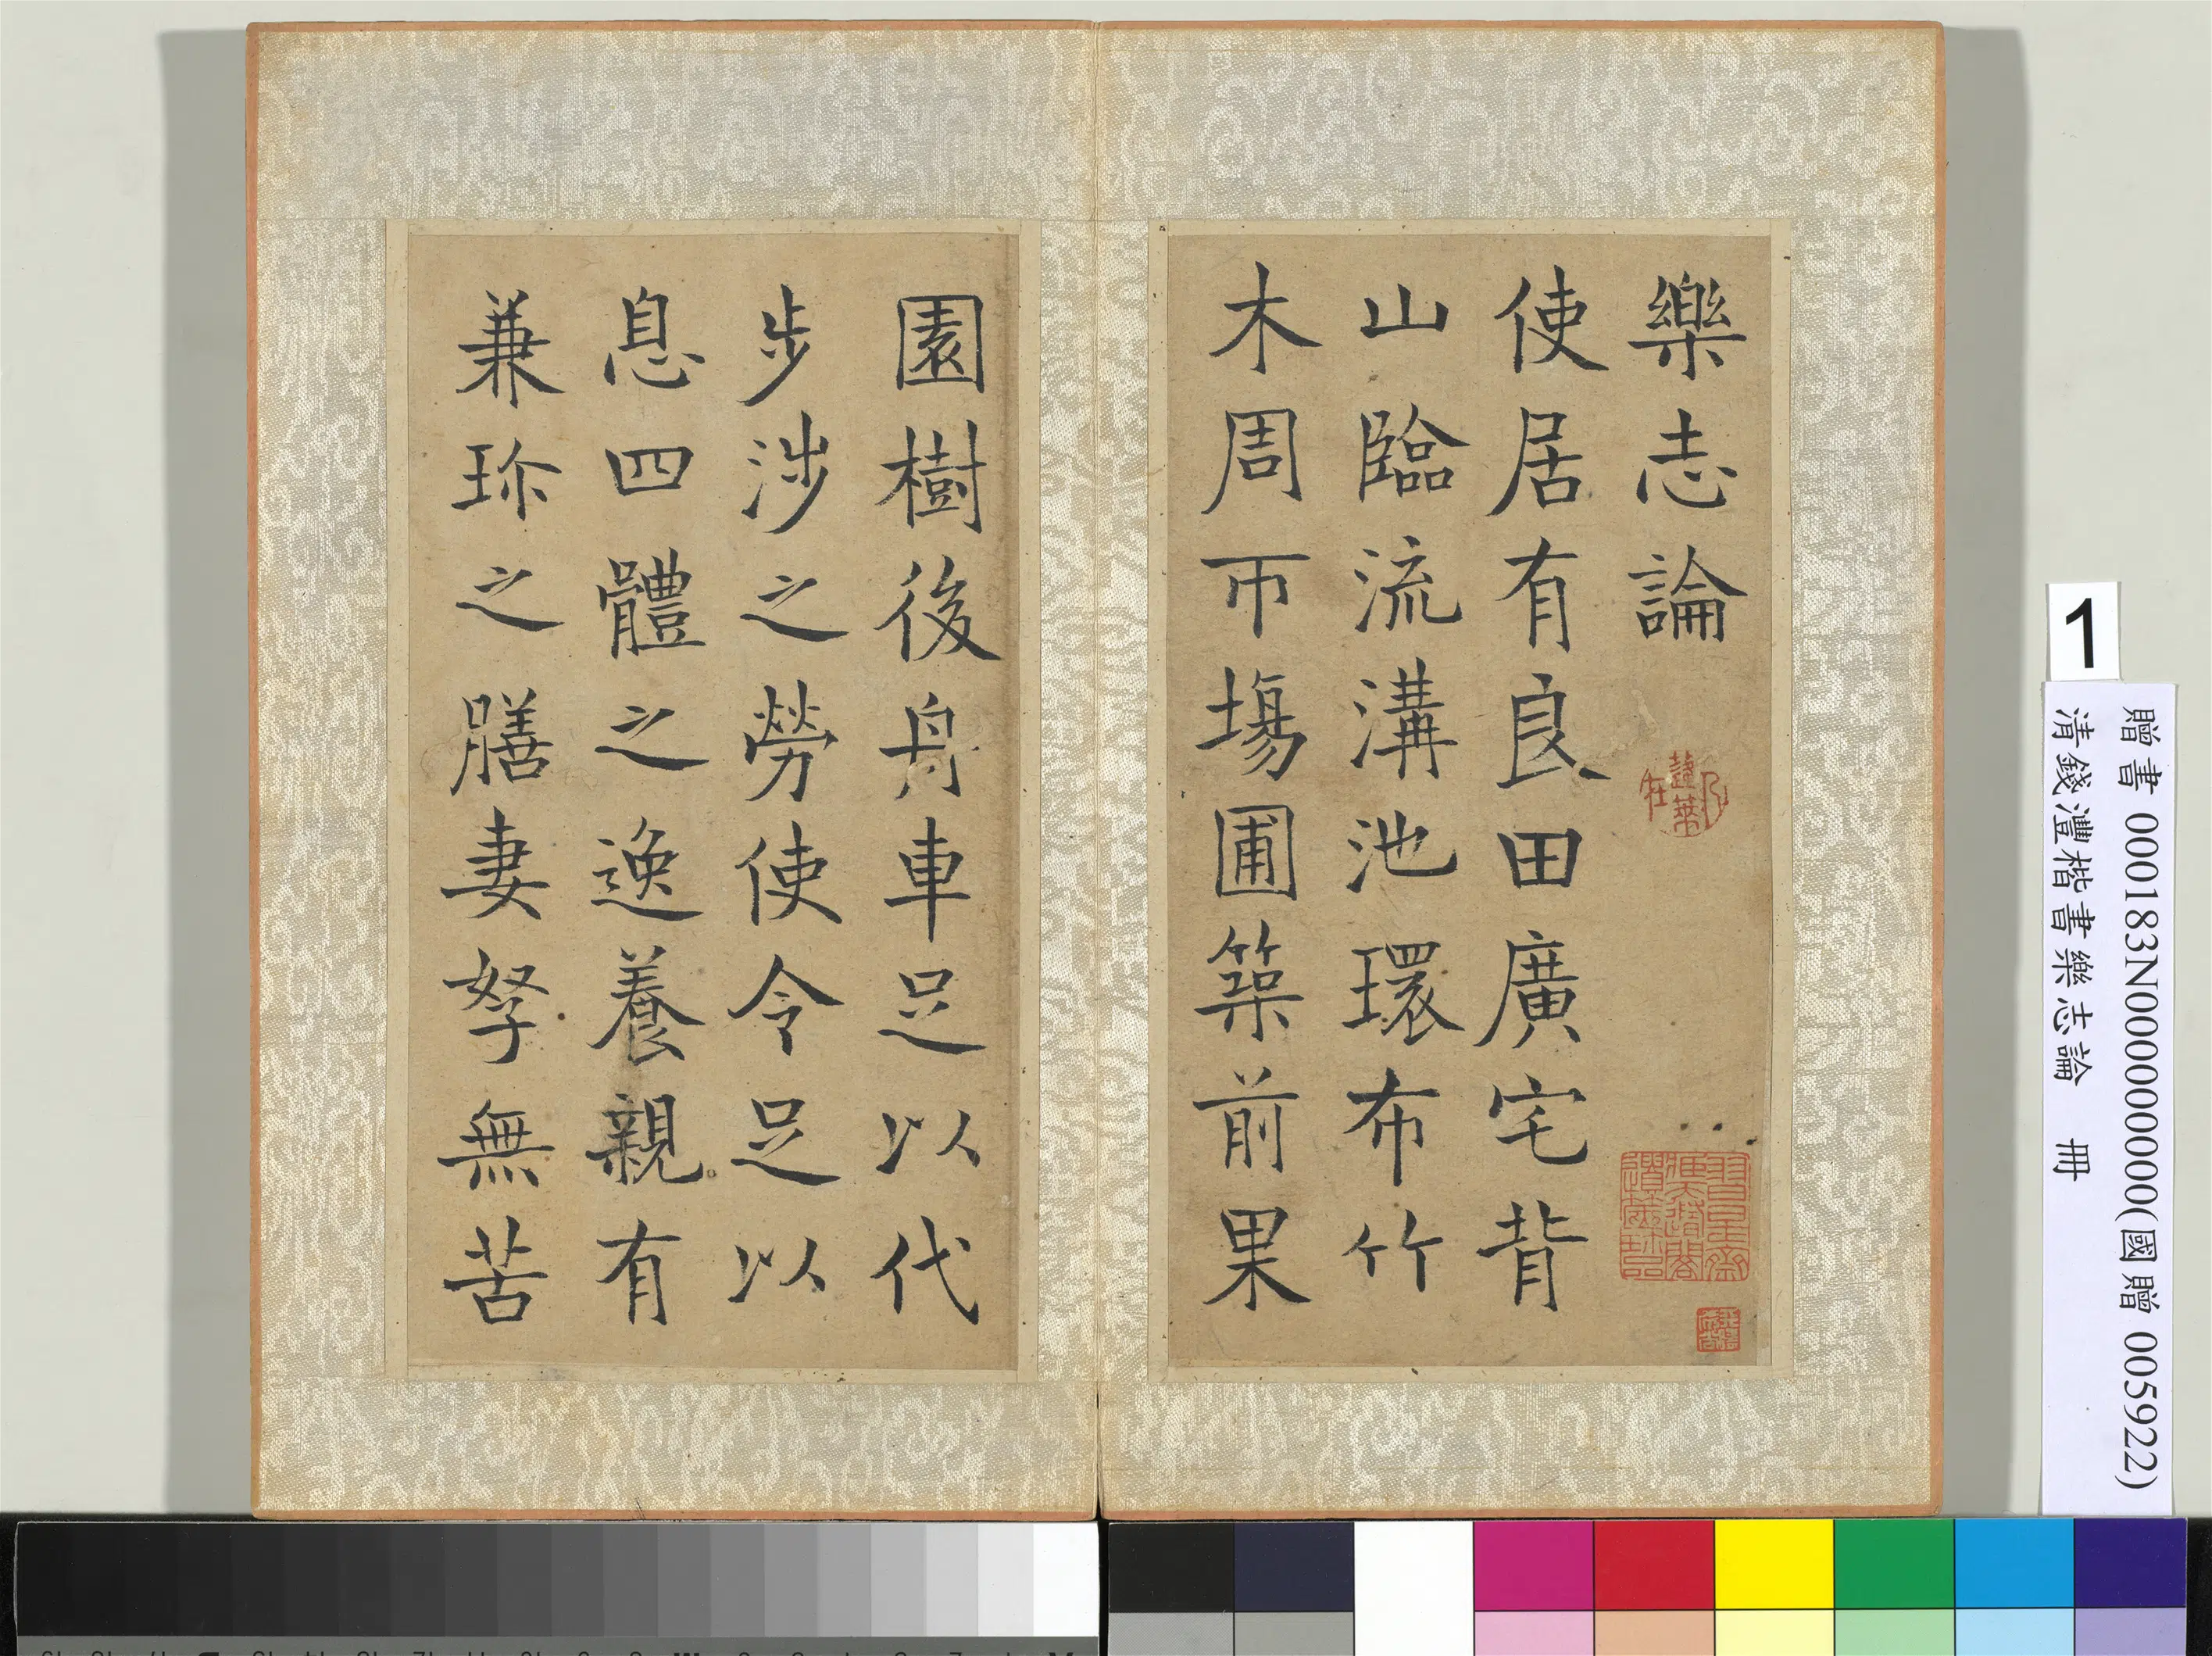 樂志論
使居有良田廣宅背
山臨流溝池環布竹
木周帀場圃築前果
園樹後舟車足以代
步涉之勞使令足以
息四體之逸養親有
兼珎之膳妻孥無苦
1
贈書 000183N000000000(國贈 005922)
清錢灃楷書樂志論 冊